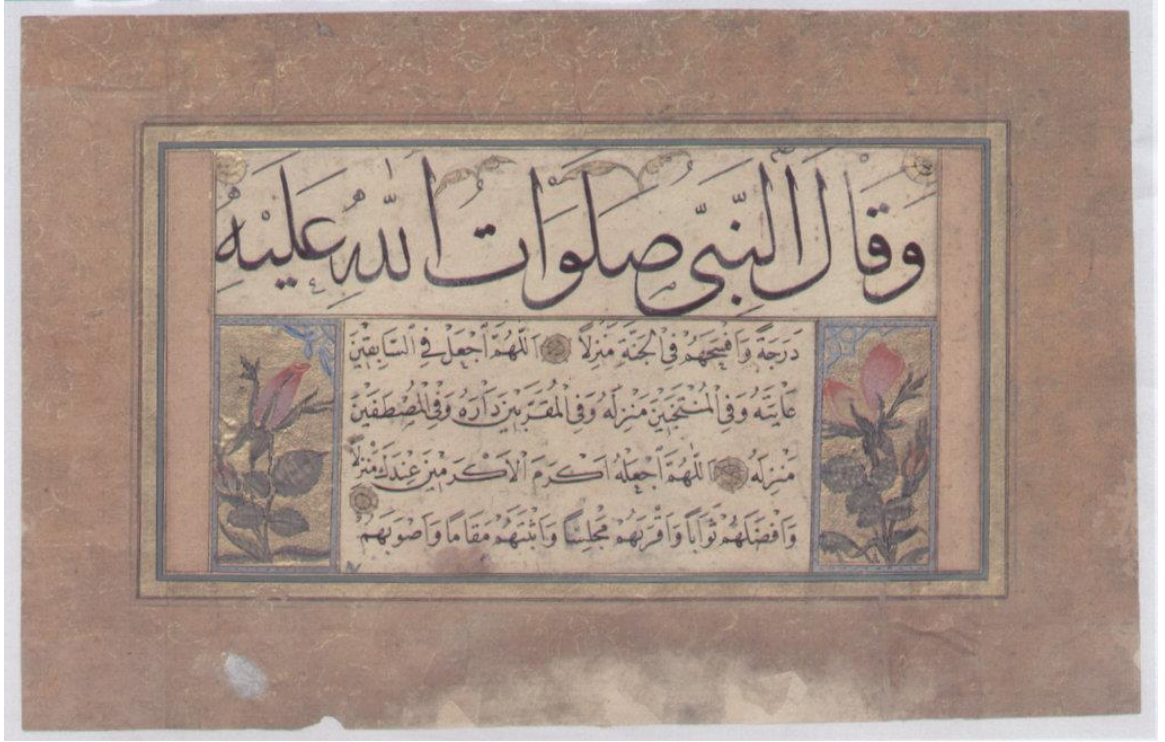 وَقَالَ النَّبِيُّ صَلَوَاتُ اللّٰهِ عَلَيْهِ
دَرَجَةً وَاَفْسَحَهُمْ فِي الْجَنَّةِ مَنْزِلًا اَللّٰهُمَّ اجْعَلْ فِي السَّابِقِينَ
غَايَتَهُ وَفِي الْمُنْتَجَبِينَ مَنْزِلَهُ وَفِي الْمُقَرَّبِينَ دَارَهُ وَفِي الْمُصْطَفَيْنَ
مَنْزِلَهُ اَللّٰهُمَّ اجْعَلْهُ اَكْرَمَ الْاَكْرَمِينَ عِنْدَكَ مَنْزِلًا
وَاَفْضَلَهُمْ ثَوَابًا وَاَقْرَبَهُمْ مَجْلِسًا وَاَثْبَتَهُمْ مَقَامًا وَاَصْوَبَهُمْ